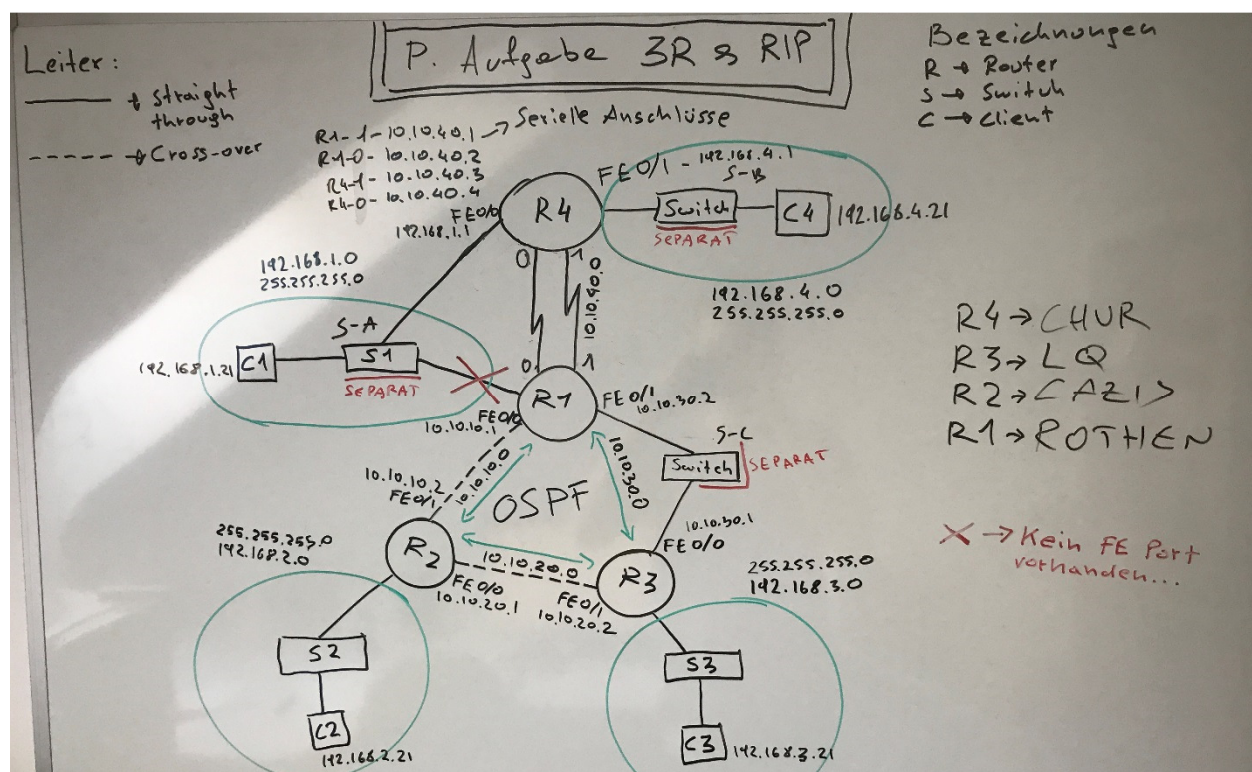 P. Aufgabe 3R & RIP
Leiter:
straight
through
Cross-over
Bezeichnungen
R → Router
S → Switch
C → Client
R1-1-10.10.40.1 → Serielle Anschlüsse
R1-0-10.10.40.2
R4-1-10.10.40.3
R4-0-10.10.40.4
FE0/0
192.168.1.1
R4
FE0/1 - 192.168.4.1
S-B
Switch
SEPARAT
C4
192.168.4.21
192.168.4.0
255.255.255.0
0
1
10.10.40.0
0
1
192.168.1.0
255.255.255.0
S-A
192.168.1.21
C1
S1
SEPARAT
R1
FE0/0
10.10.10.1
FE0/1
10.10.30.2
S-C
Switch
SEPARAT
10.10.10.2
FE0/1
10.10.10.0
OSPF
10.10.30.0
10.10.30.1
FE0/0
255.255.255.0
192.168.2.0
R2
10.10.20.0
FE0/0
10.10.20.1
FE0/1
10.10.20.2
R3
255.255.255.0
192.168.3.0
S2
C2
192.168.2.21
S3
C3
192.168.3.21
R4 → CHUR
R3 → LQ
R2 → CAZIS
R1 → ROTHEN
X → Kein FE Port
vorhanden...